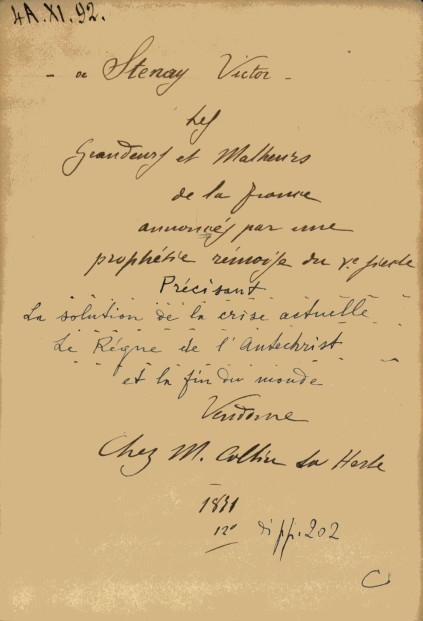 4A.XI.92.
- de Stenay Victor -
Les
Grandeurs et Malheurs
de la France
annoncés par une
prophétie rémoise du Ve siècle
Précisant
La solution de la crise actuelle
Le Règne de l'Antechrist
et la fin du monde
Vendome
Chez M. Collin La Herte
18
12º di pp. 202
C